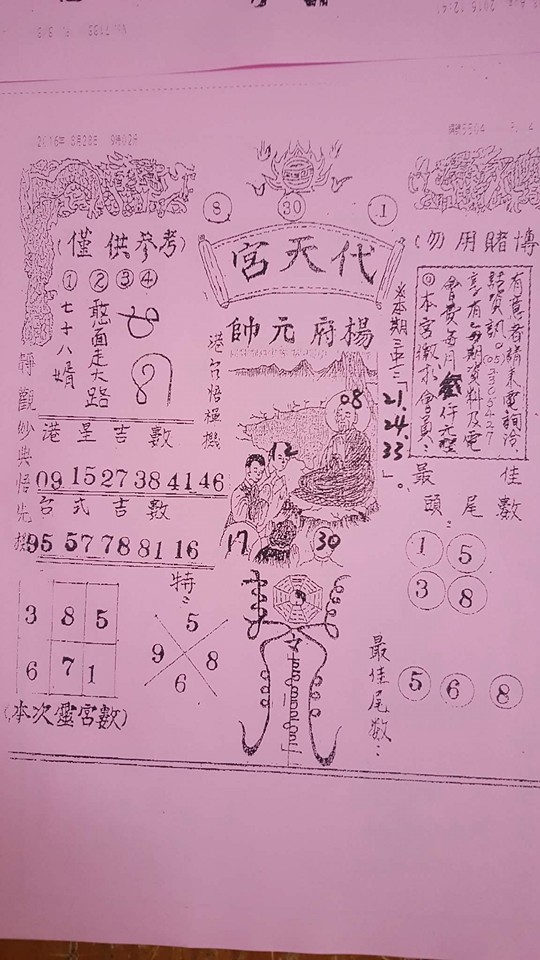 2016年 8月28日 9時02分
8 30 1
宮天代
帥元府楊
(僅供參考)
(勿用賭博
① ② ③ ④
七十八婿
憨面走大路
港台悟極機
※本期三中三「21.24.33」。
有意者請來電詢洽
◎本宮徵求會員:
靜觀妙典悟先機
港星吉數
09 15 27 38 41 46
台式吉數
95 57 78 81 16
08
12
17
30
最佳
頭尾數:
1 5
3 8
特:
5
9 8
6
3 8 5
6 7 1
(本次靈宮數)
最佳尾數:
5 6 8